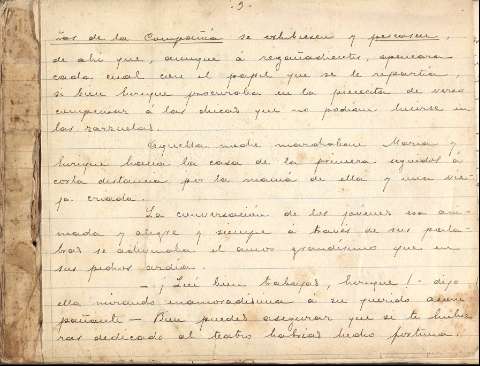 · 9 ·
ñas de la Compañía se exhibiesen y
de ahi que, aunque á regañadientes, apencara
cada cual con el papel que se le repartía,
si bien Enrique procuraba en la piececita de verso
compensar á las chicas que no podían lucirse en
las zarzuelas.
Aquella noche marchaban María y
Enrique hacia la casa de la primera seguidos á
corta distancia por la mamá de ella y una vie-
ja criada.
La conversación de los jóvenes era ani-
mada y alegre y siempre á través de sus pala-
bras se adivinaba el amor grandísimo que en
sus pechos ardía.
- ¡Qué bien trabajas, Enrique! - dijo
ella mirando enamoradísima á su querido acom-
pañante - Bien puedes asegurar que si te hubie-
ras dedicado al teatro habrías hecho fortuna.